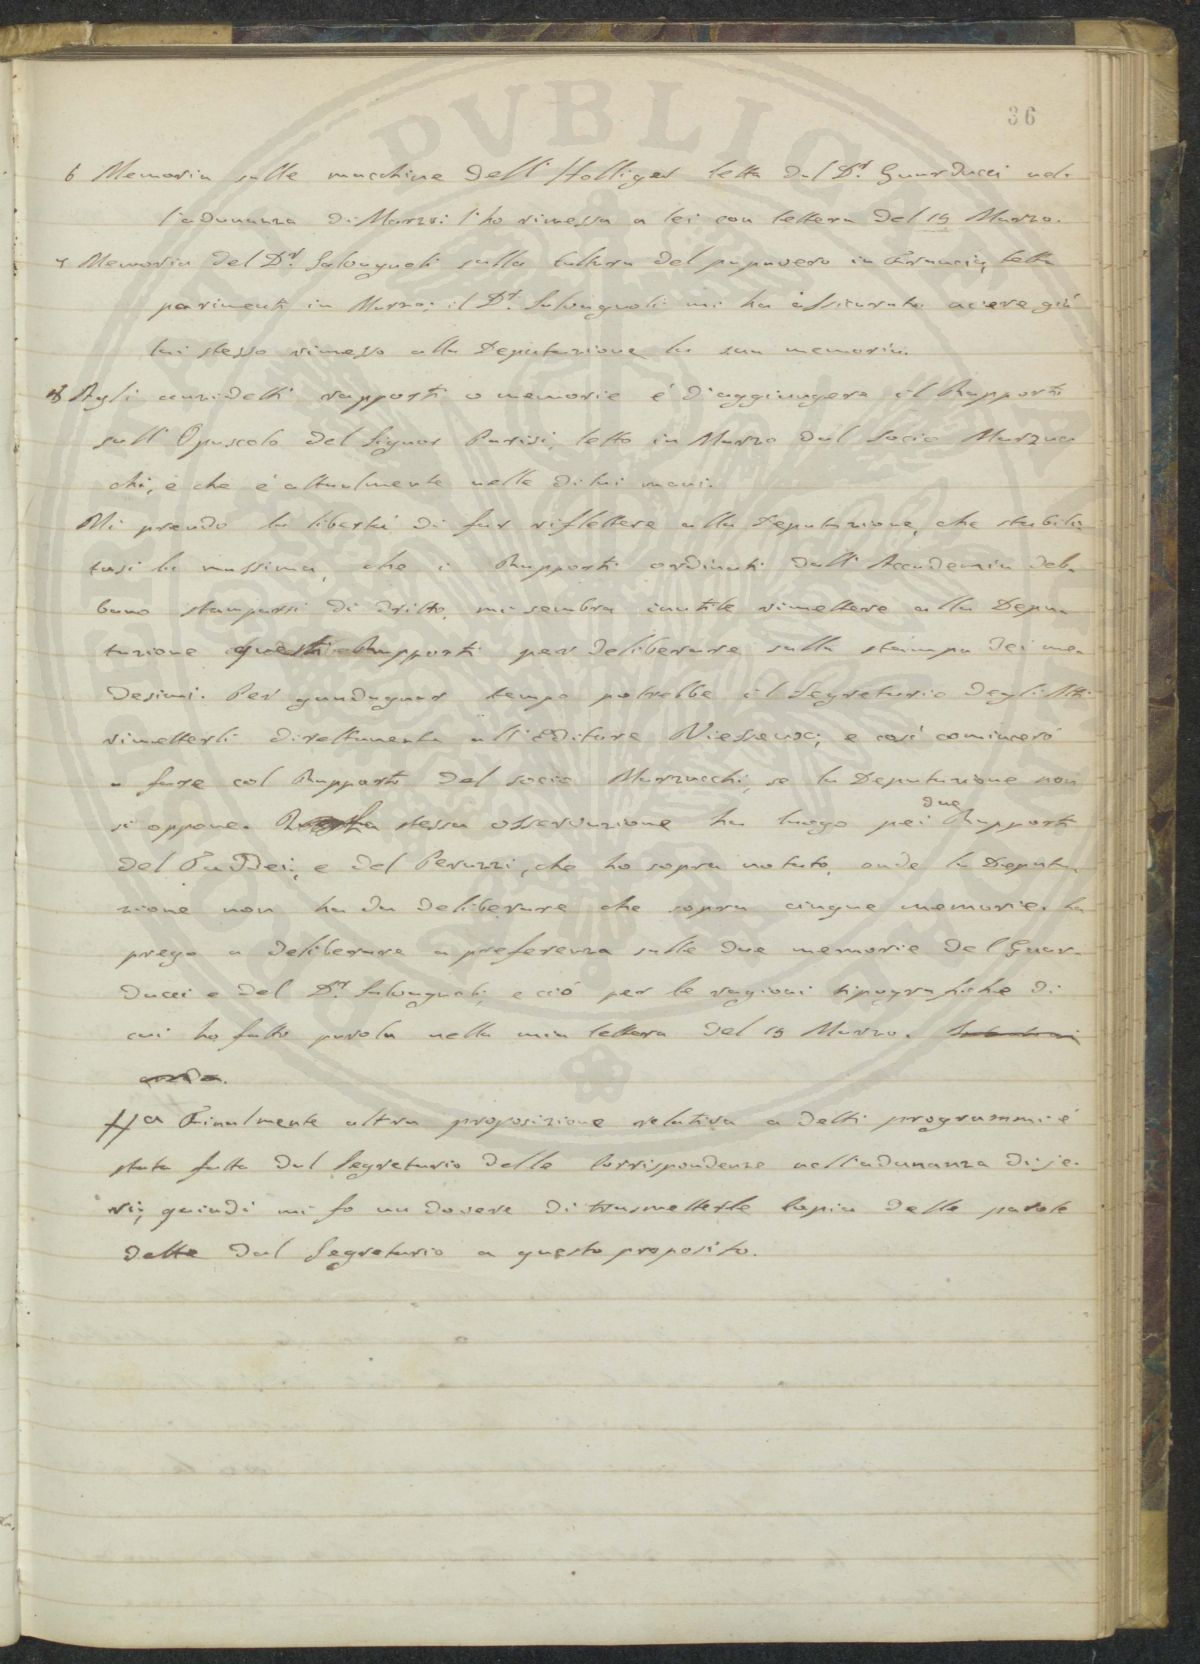 36
6 Memoria sulle macchine dell' Holliger letta dal Dr. Guarducci nel-
l'adunanza di Marzo: l'ho rimessa a lei con lettera del 15 Marzo.
7 Memoria del Dr. Salvagnoli sulla Cultura del papavero in Francia, letta
parimenti in Marzo; il Dr. Salvagnoli mi ha assicurato avere già
lui stesso rimesso alla Deputazione la sua memoria.
8 Agli anzidetti rapporti o memorie é d'aggiungere il Rapporto
sull' Opuscolo del Signor Parisi, letto in Marzo dal Socio Marzuc
chi, e che é attualmente nelle di lui mani.
Mi prendo la libertá di far riflettere alla Deputazione, che stabili-
tasi la massima, che i Rapporti ordinati dall' Accademia deb-
bano stamparsi di dritto, mi sembra inutile rimettere alla Depu-
tazione questi Rapporti per deliberare sulla stampa dei me-
desimi. Per guadagnar tempo potrebbe il Segretario degli Atti
rimetterli direttamente all' Editore Viesseux; e così cominceró
a fare col Rapporto del socio Marzucchi, se la Deputazione non
si oppone. Questa stessa osservazione ha luogo pei due Rapporti
del Taddei, e del Peruzzi, che ho sopra notato, onde la Deputa-
zione non ha da deliberare che sopra cinque memorie. La
prego a deliberare a preferenza sulle due memorie del Guar-
ducci e del Dr. Salvagnoli, e ció per le ragioni tipografiche di
cui ho fatto parola nella mia lettera del 15 Marzo.
Finalmente altra proposizione relativa a detti programmi é
stata fatta dal Segretario delle Corrispondenze nell'adunanza di je-
ri; quindi mi fo un dovere di trasmetterle copia delle parole
dette dal Segretario a questo proposito.